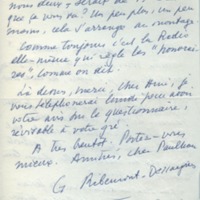 nous deux, serait de 15
que ça vous va? Un peu plus, un peu
moins, cela s'arrange au montage
Comme toujours c'est la Radio
elle-même qui règle les "honorai-
res", comme on dit.
Là-dessus, merci, cher Ami, je
vous téléphonerai lundi pour avoir
votre avis sur le questionnaire,
révisable à votre gré.
A très bientôt. Portez-vous
mieux. Amitiés, cher Paulhan
G. Ribemont-Dessaignes